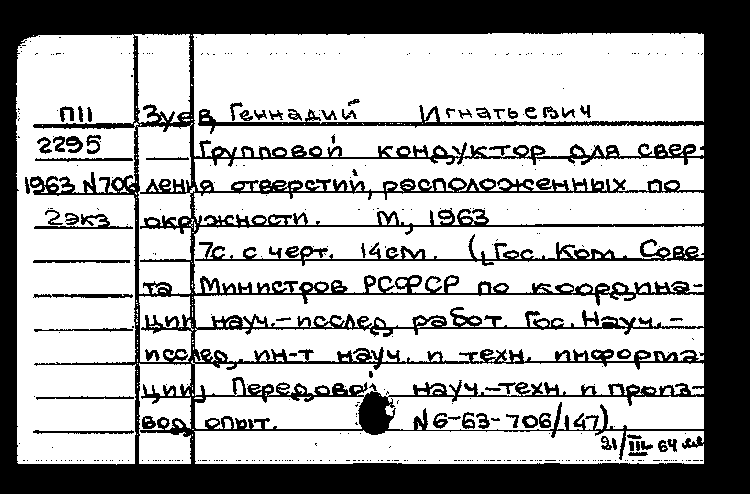 П11 Зуев, Геннадий Игнатьевич
2295 Групповой кондуктор для свер-
1963 N706 ления отверстий, расположенных по
2экз окружности. М., 1963
7с. с черт. 14см. ([Гос. Ком. Сове-
та Министров РСФСР по координа-
ции науч.-исслед. работ. Гос. Науч.-
исслед. ин-т науч. и техн. информа-
ции]. Передовой науч.-техн. и произ-
вод. опыт. N6-63-706/147).
21/III-64